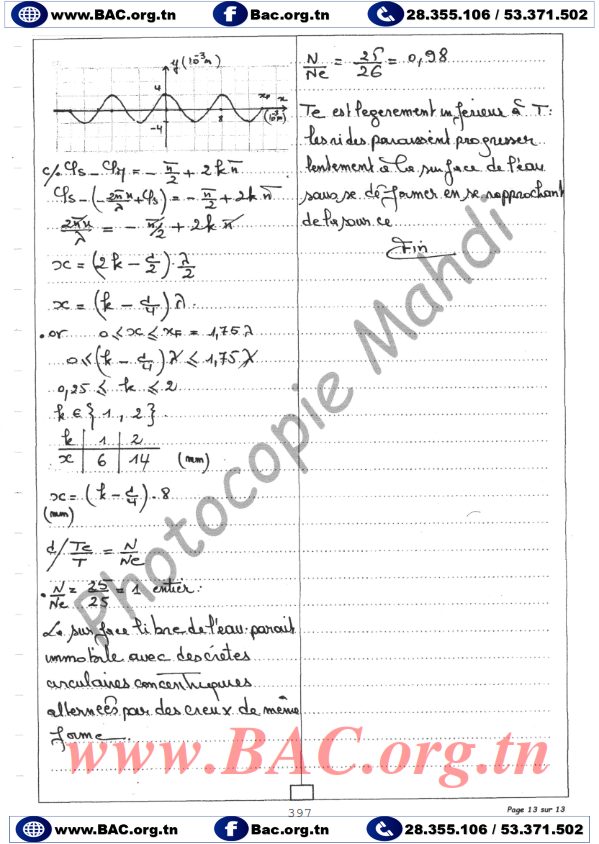 www.BAC.org.tn Bac.org.tn 28.355.106 / 53.371.502
y(10⁻³m)
4
8
x_F x
-4
(10⁻³m)
c/. φs - φM = - π/2 + 2kπ
φs - (- 2πx/λ + φs) = - π/2 + 2kπ
2πx/λ = - π/2 + 2kπ
x = (2k - 1/2) . λ/2
x = (k - 1/4) λ
. or 0 ⩽ x ⩽ x_F = 1,75λ
0 ⩽ (k - 1/4) λ ⩽ 1,75 λ
0,25 ⩽ k ⩽ 2
k ∈ {1, 2}
k 1 2
x 6 14 (mm)
x = (k - 1/4) . 8
(mm)
d/ Te/T = N/Ne
. N/Ne = 25/25 = 1 entier :
La surface libre de l'eau parait
immobile avec des crêtes
circulaires concentriques
alternées par des creux de même
forme.
N/Ne = 25/26 = 0,98
Te est legerement inférieur à T :
les rides paraissent progresser
lentement à la surface de l'eau
sans se déformer en se rapprochant
de la source
Fin
Photocopie Mahdi
www.BAC.org.tn
397
Page 13 sur 13
www.BAC.org.tn Bac.org.tn 28.355.106 / 53.371.502